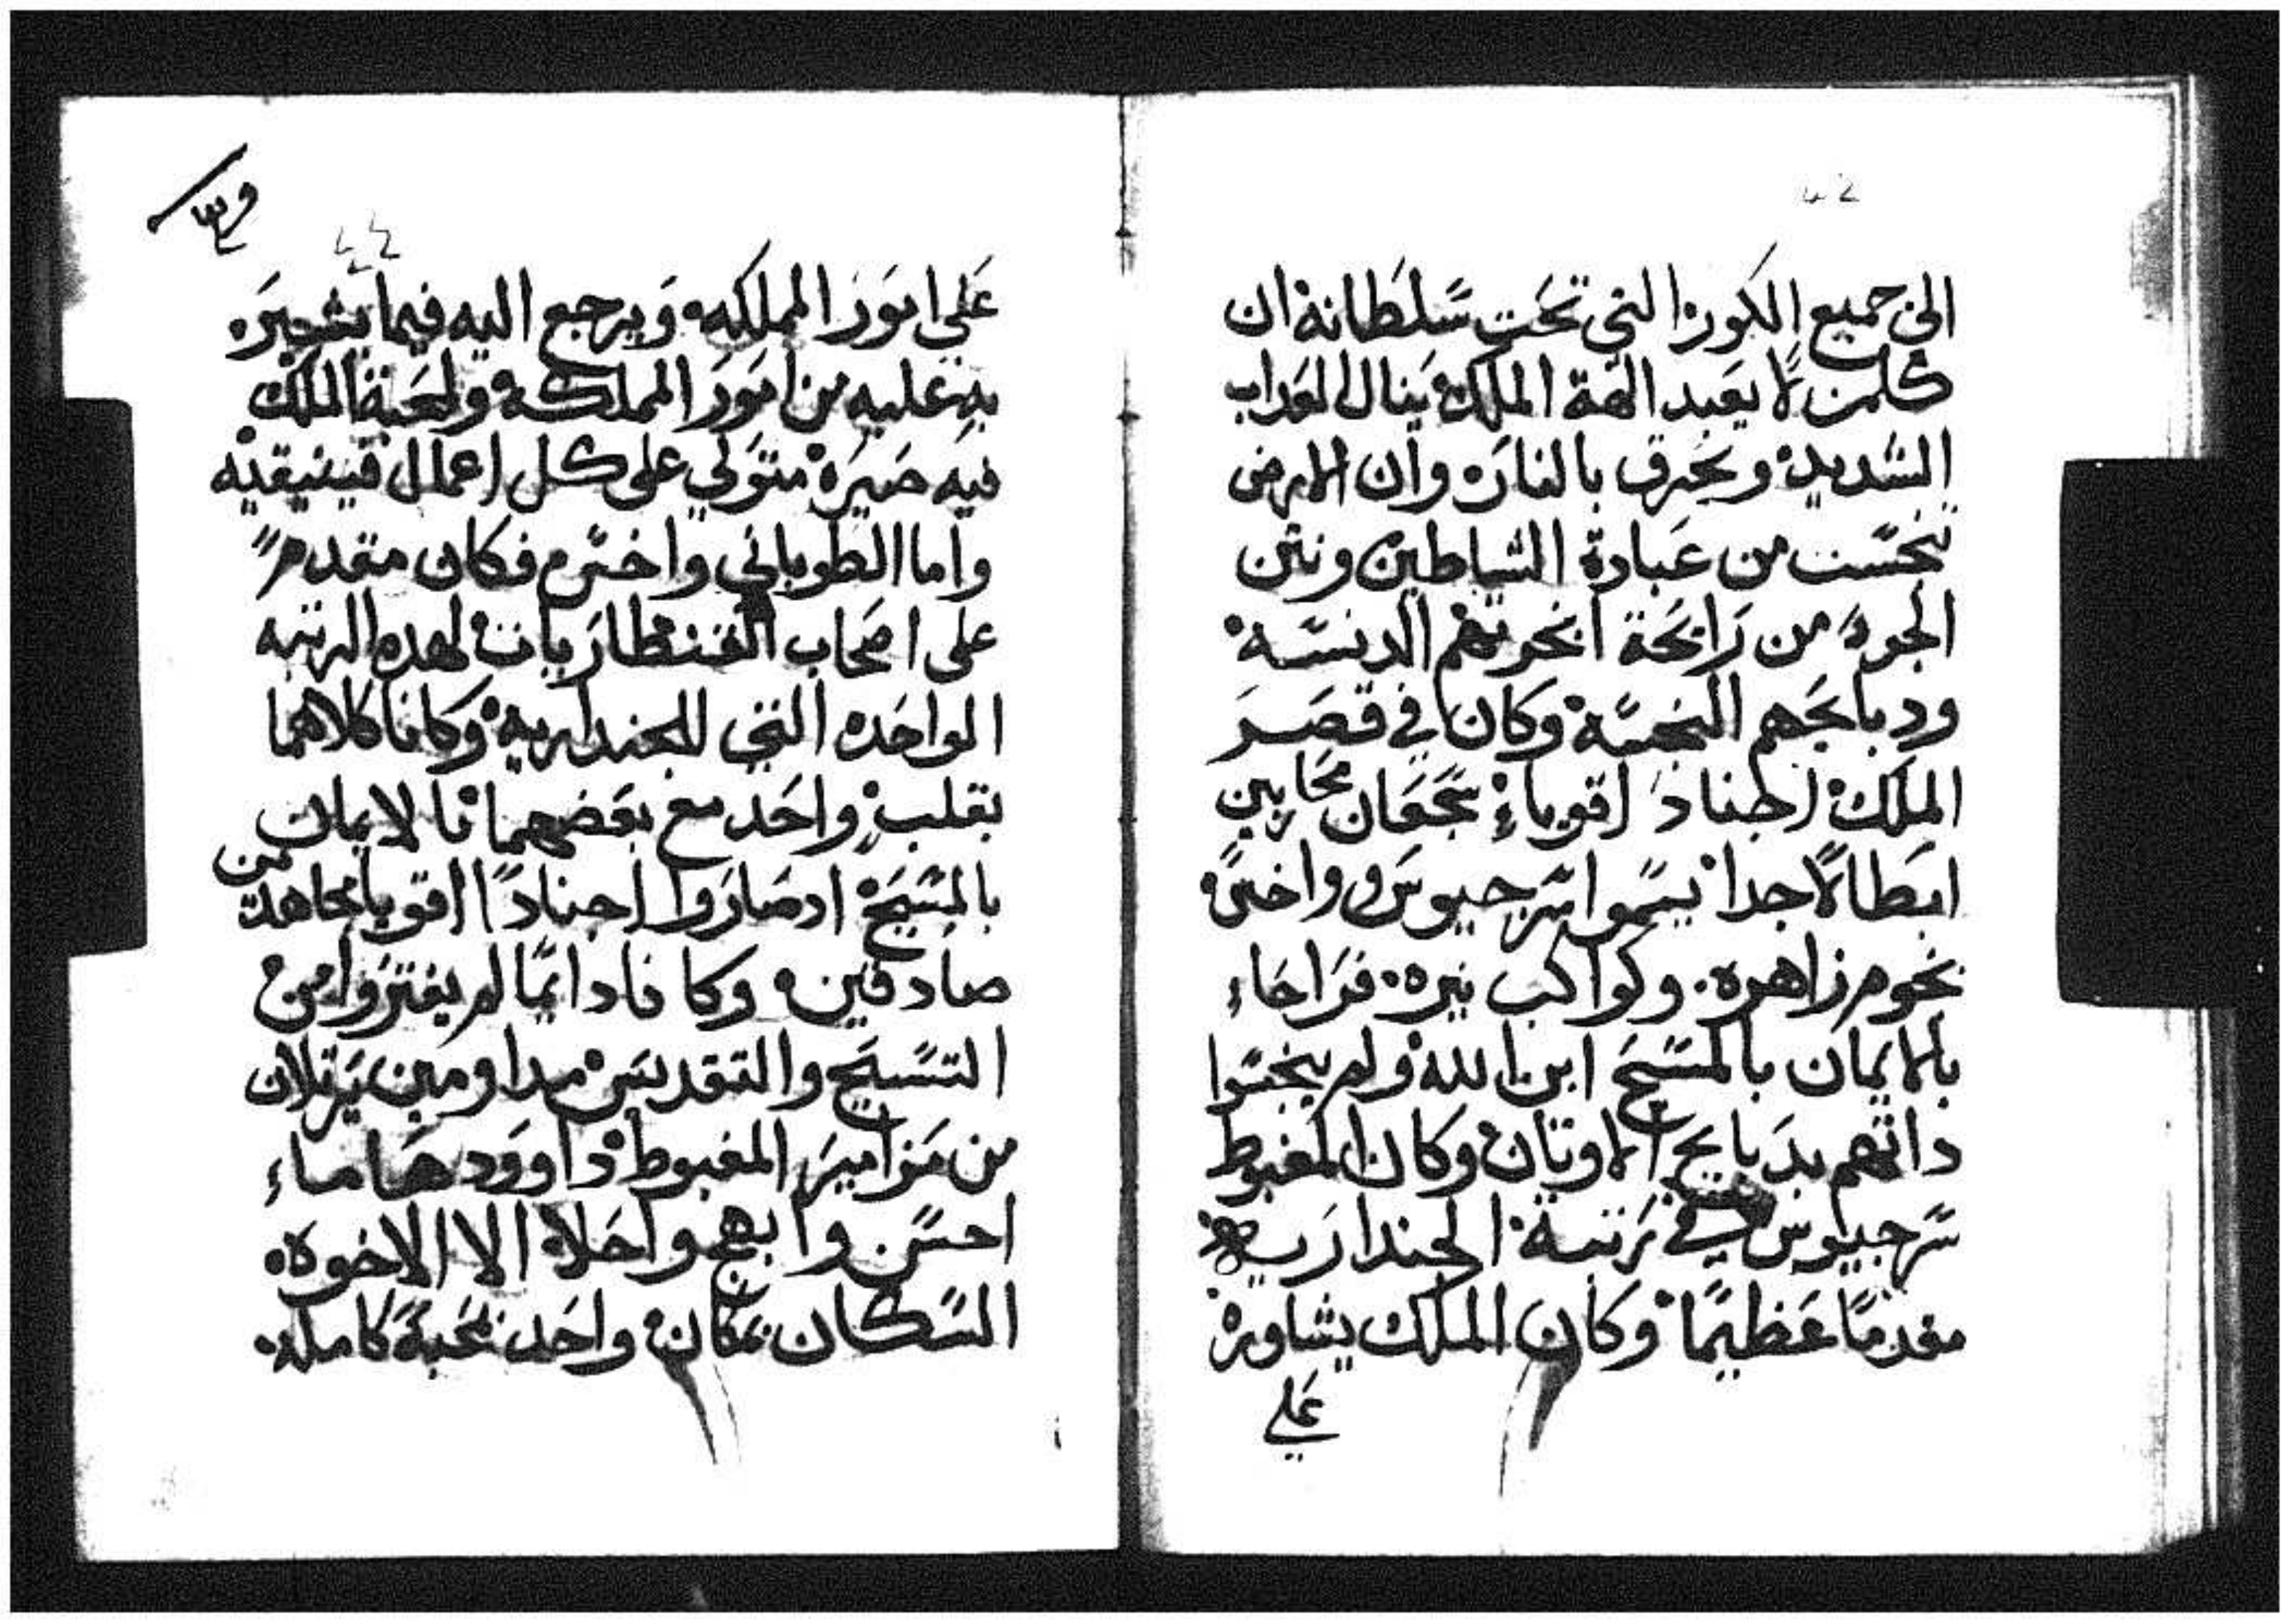 الى جميع الكور التي تحت سلطانه ان
كلمن لا يعبد الهة الملك ينال العداب
الشديد ويحرق بالنار وان الارض
تنجست من عبادة الشياطين ونتن
الجو من رايحة ابخورتهم الدنسه
ودبايحهم النجسه وكان في قصر
الملك اجناد اقوياء شجعان محاربين
ابطالا جدا يسموا سرجيوس وواخس
نجوم زاهره وكواكب نيره فراحاء
بالايمان بالمسيح ابن الله ولم ينجسوا
داتهم بدبايح الاوتان وكان المغبوط
سرجيوس في رتبة الجنداريه
مقدما عظيما وكان الملك يشاوره
علي
علي امور المملكه ويرجع اليه فيما يشير
به عليه من امور المملكه ولمحبة الملك
فيه صيره متولي على كل اعمال
واما الطوباني واخس فكان مقدم
على اصحاب القنطاريات لهده الرتبه
الواحده التي للجنداريه وكانا كلاهما
بقلب واحد مع بعضهما فا لايمان
بالمسيح اد صاروا اجنادا اقويا مجاهدين
صادقين وكانا دايما لم يفتروا من
التسبيح والتقديس مداومين يرتلان
من مزامير المغبوط داوود هاماء
احسن وابهج واحلا الا الاخوه
السكان بمكان واحد بمحبة كامله